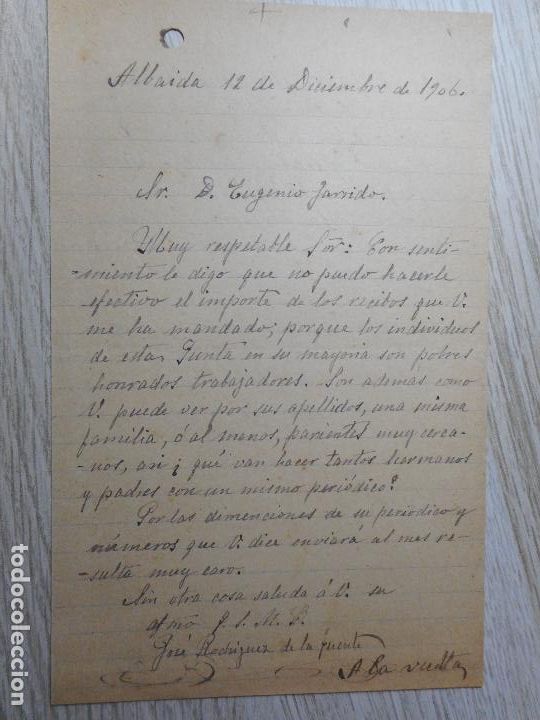 Albaida 12 de Diciembre de 1906.
Sr. D. Eugenio Garrido.
Muy respetable Sor: Con senti-
-miento le digo que no puedo hacerle
efectivo el importe de los recibos que V.
me ha mandado; porque los individuos
de esta Junta en su mayoria son pobres
honrados trabajadores. Son ademas como
V. puede ver por sus apellidos, una misma
familia, ó al menos, parientes muy cerca-
-nos, asi ¿ qué van hacer tantos hermanos
y padres con un mismo periódico?
Por las dimenciones de su periodico y
números que V. dice enviará al mes re-
-sulta muy caro.
Sin otra cosa saluda á V. su
afmo
José Rodriguez de la fuente
A la vuelta
todocoleccion